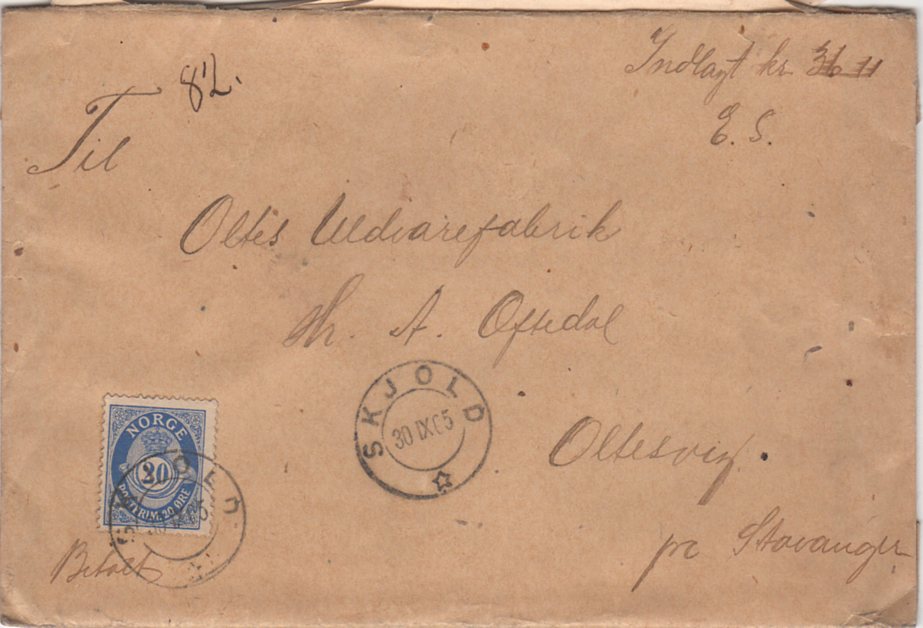 Indlagt kr 36 11
E. S.
82.
Til
Oltes Uldvarefabrik
Hr. A. Oftedal
SKJOLD
30 IX 05
NORGE
20
POSTFRIM. 20 ØRE
SKJOLD
Oltesvig.
pr Stavanger
Betalt